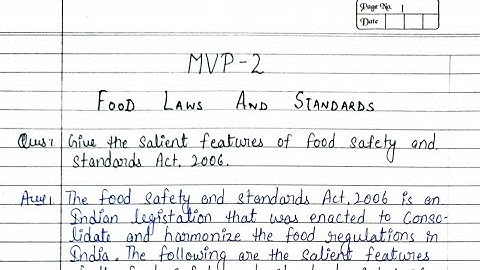 Page No. 1
Date
MVP-2
FOOD LAWS AND STANDARDS
Ques: Give the salient features of food safety and
standards Act, 2006.
Ans: The food safety and standards Act, 2006 is an
Indian legistation that was enacted to Conso-
lidate and harmonize the food regulations in
India. The following are the salient features